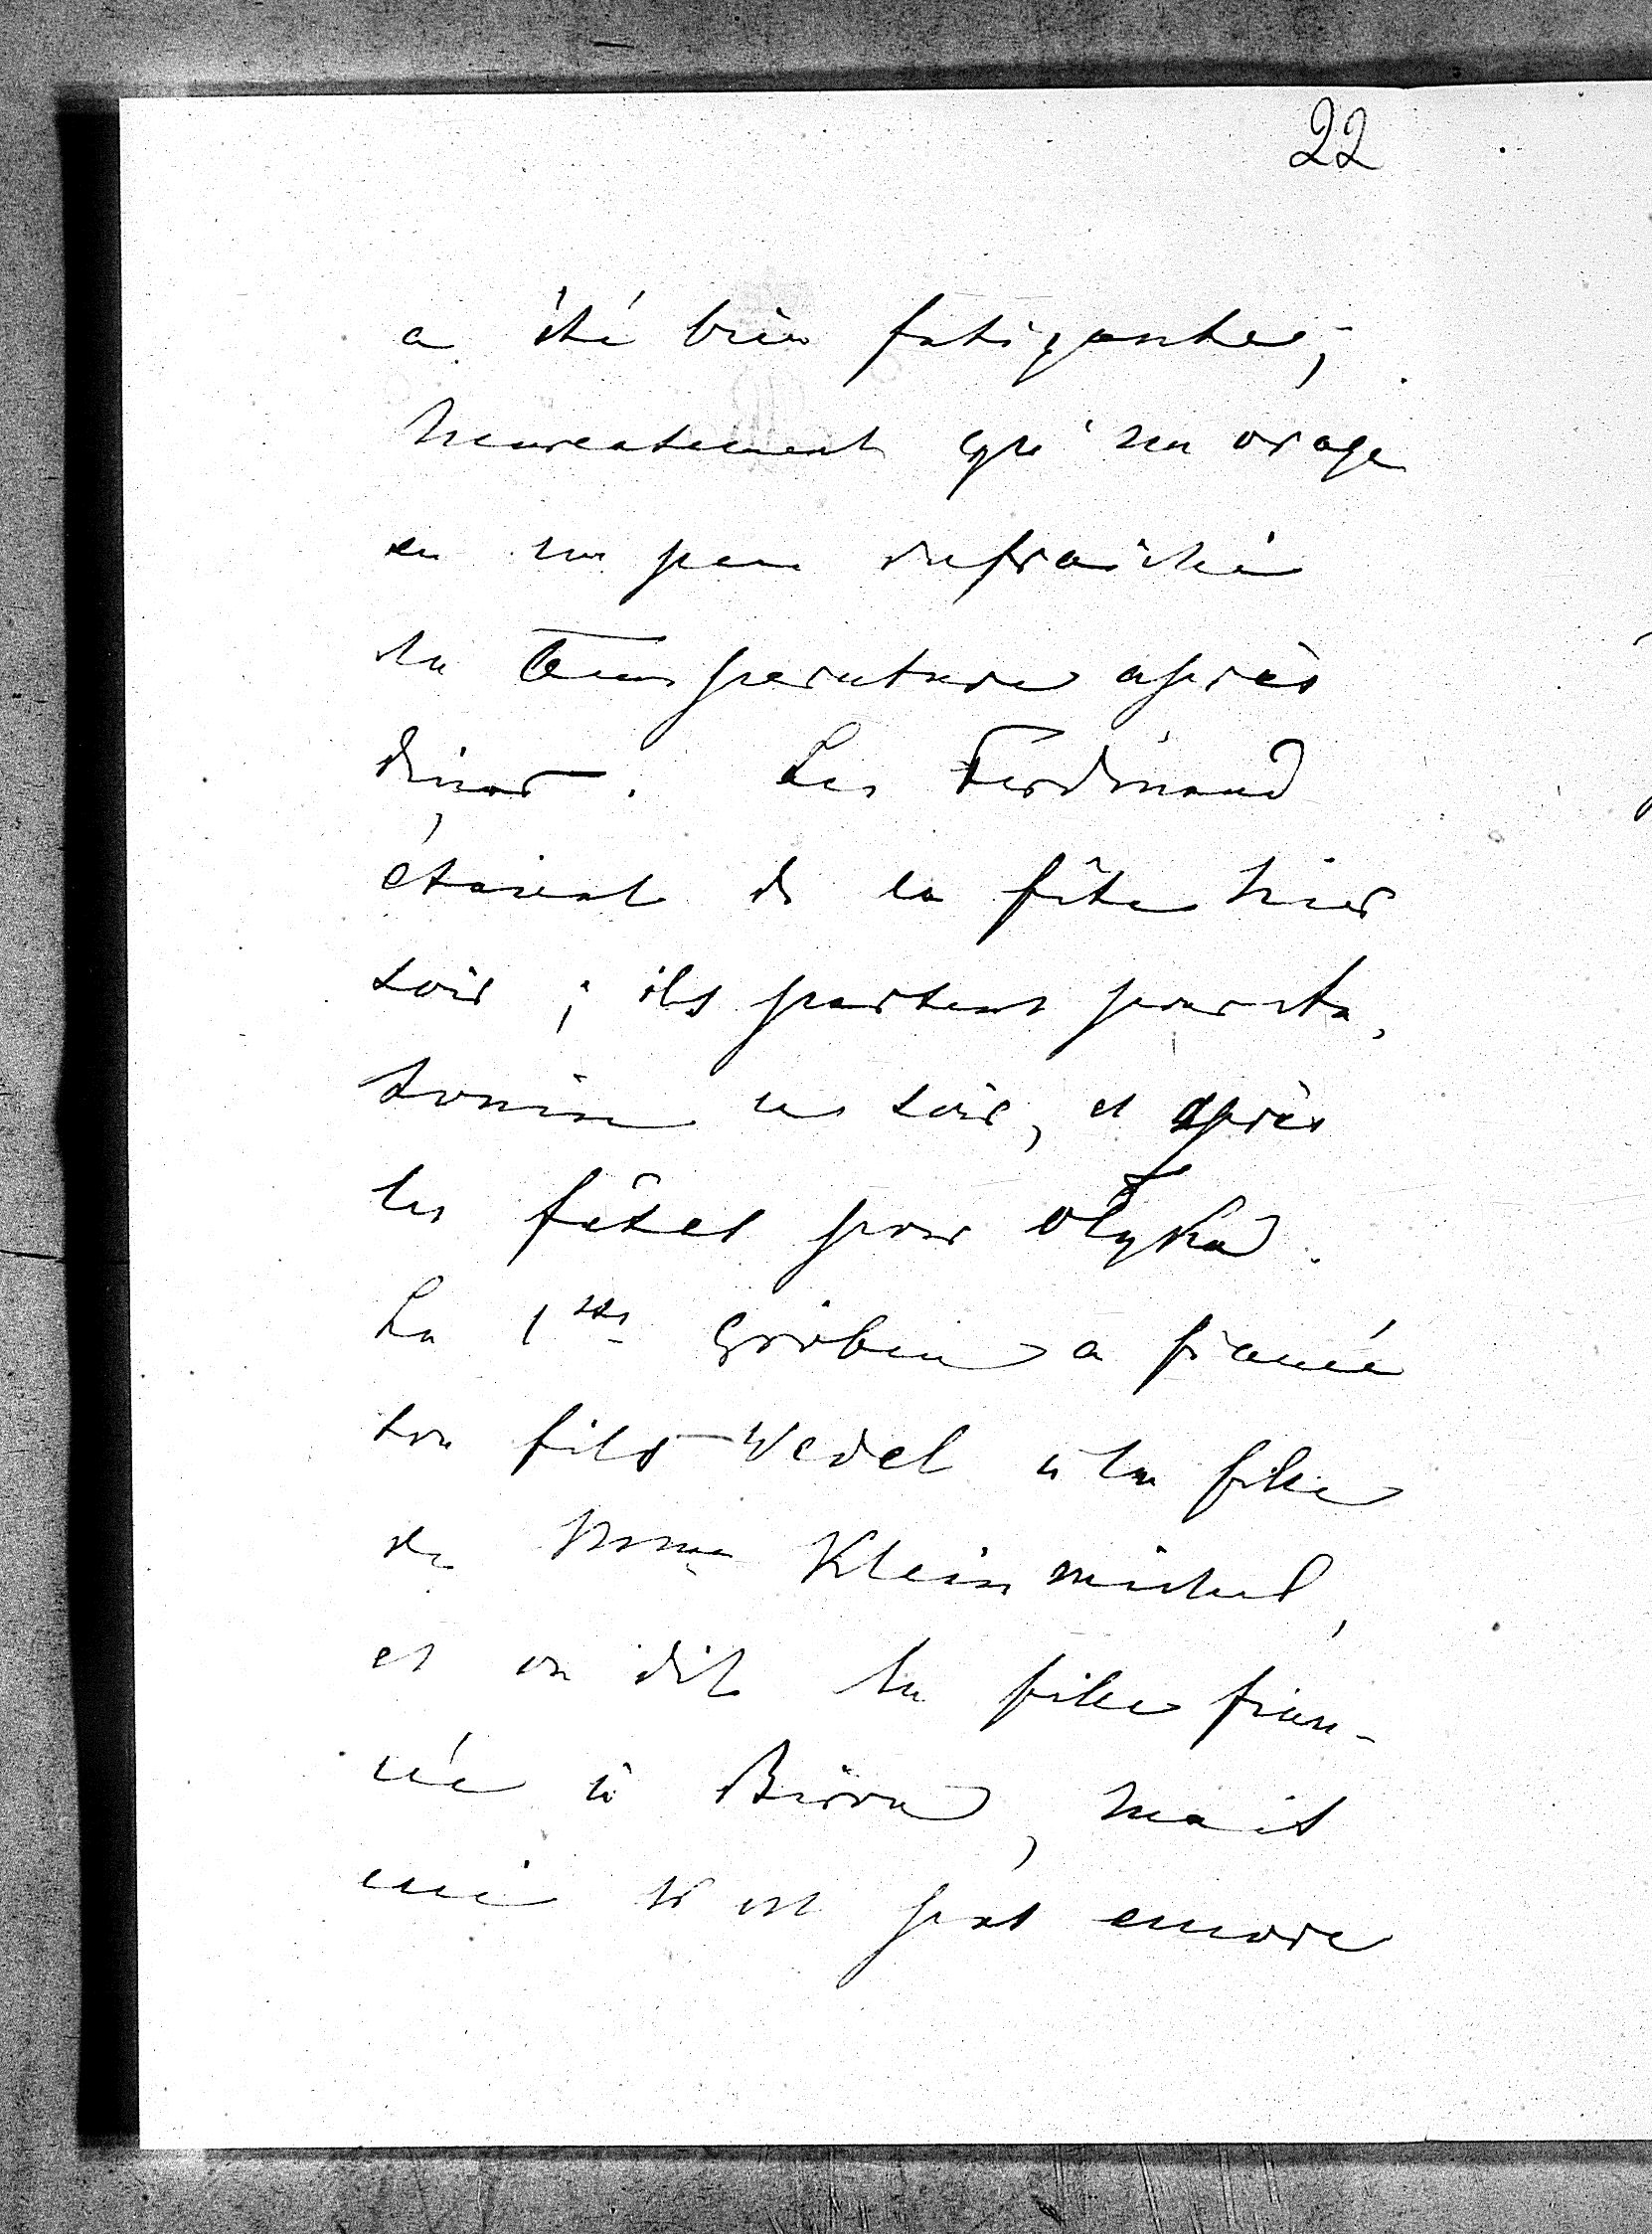 22
a été bien fatigante;
heureusement qu'un orage
a un peu rafraichi
la température après
diner. Les Ferdinand
étaient de la fête hier
soir; ils partent pour An,
tonin ce soir, et après
les fêtes pour Olyka.
La Gröben a fiancé
son fils Wedel à la fille
de Mme Kleinmichel,
et on dit la fille fian-
cée à Biron, mais
ceci n'est pas encore